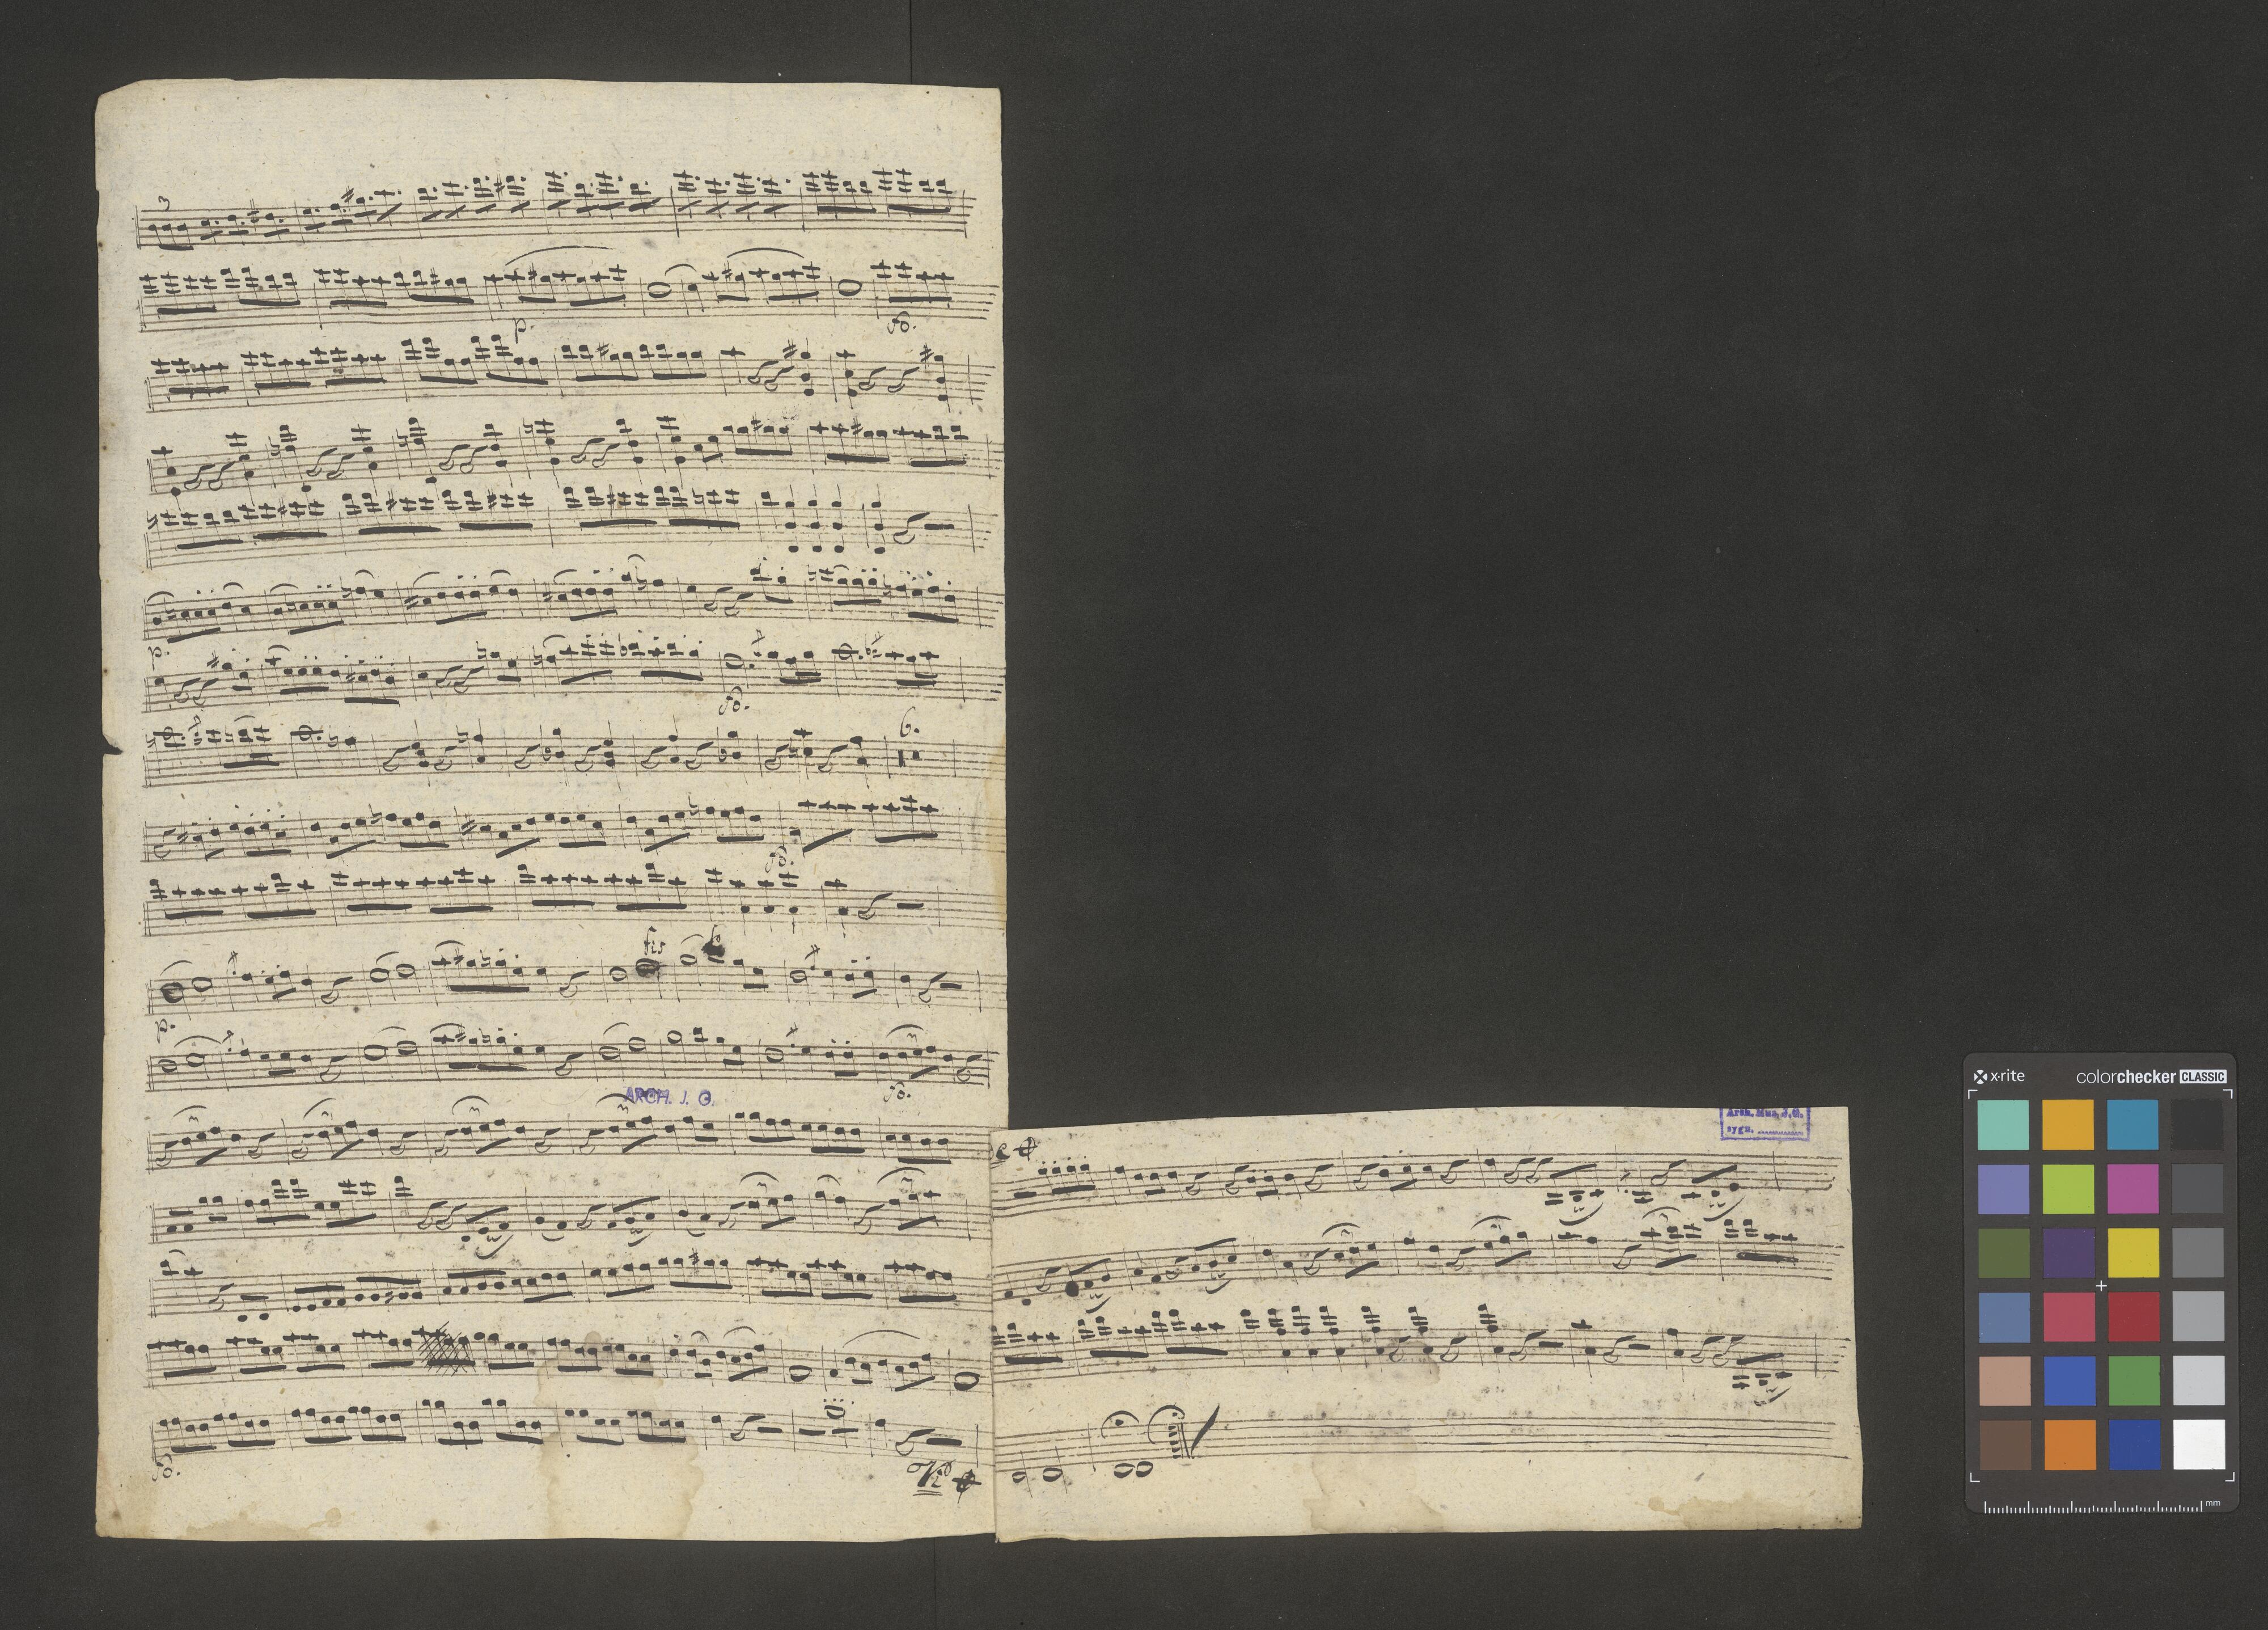 3
p.
fo.
p.
fo.
6.
fo.
fis
p.
fo.
ARCH. J. G.
fo.
Arch. Mus. J. G.
sygn. ............
x·rite
colorchecker CLASSIC
mm